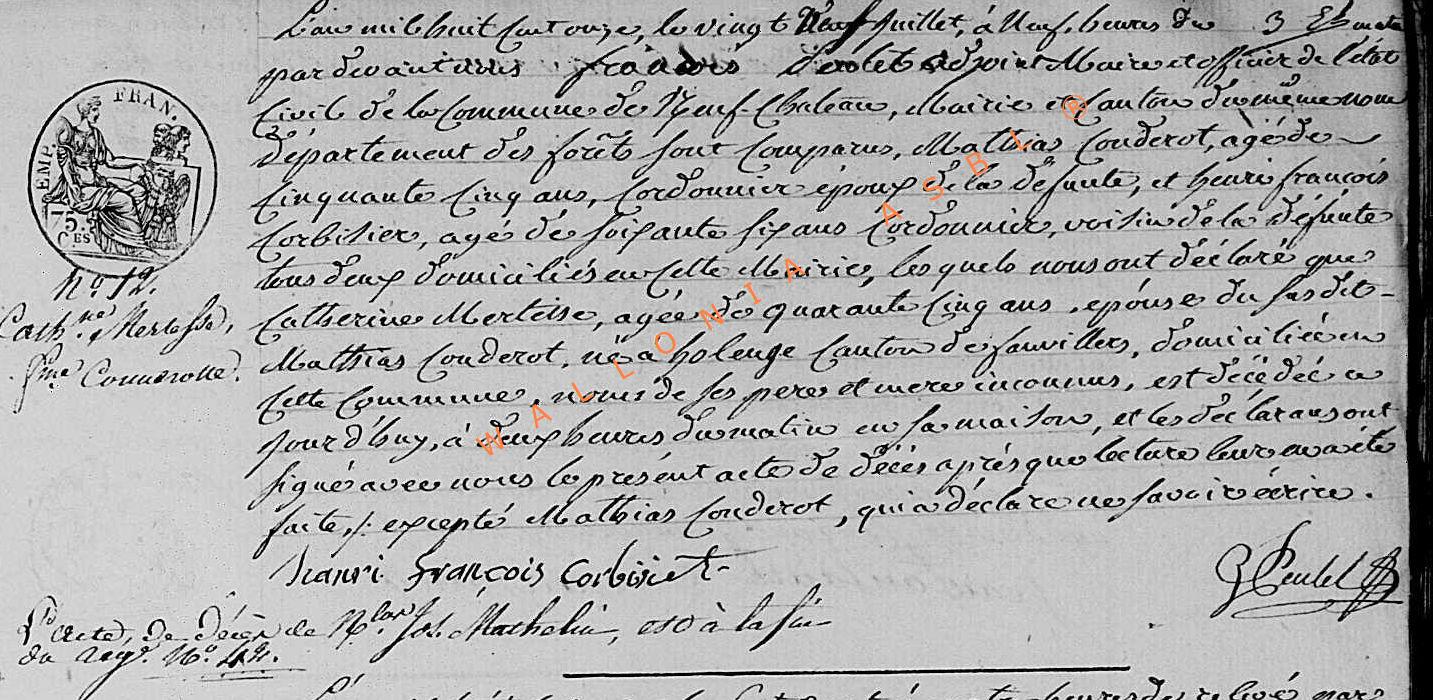 L'an mil huit cent onze, le vingt neuf Juillet, à Neuf heures du matin
par devant nous françois adjoint Maire et officier de l'état
Civil de la Commune de Neuf-Chateau, Mairie et Canton du même nom
département des forêts sont Comparus, Mathias Conderot, agé de
Cinquante Cinq ans, Cordonnier époux de la defunte, et henri françois
Corbisier, agé de soixante six ans Cordonnier, voisin de la défunte
tous deux domiciliés en Cette Mairie, lesquels nous ont déclaré que
Catherine Mertesse, agée de quarante Cinq ans, epouse du susdit
Mathias Conderot, né à holenge Canton de fauvillers, domiciliée en
Cette Commune, noms de ses pere et mere inconnus, est décédée ce
jourd'huy, à deux heures du matin en sa maison, et les déclarans ont
signé avec nous le présent acte de décès après que lecture leur en a été
faite, /: excepté Mathias Conderot, qui a déclaré ne savoir écrire.
henri françois Corbisier
EMP. FRAN.
75.
CES
No. 12.
Cathne Mertesse,
fme Conderotte.
L'acte, de décès de Nlas Jos. Mathelin, est à la fin
du regr. No. 42.
WALLONIA ASBL ®